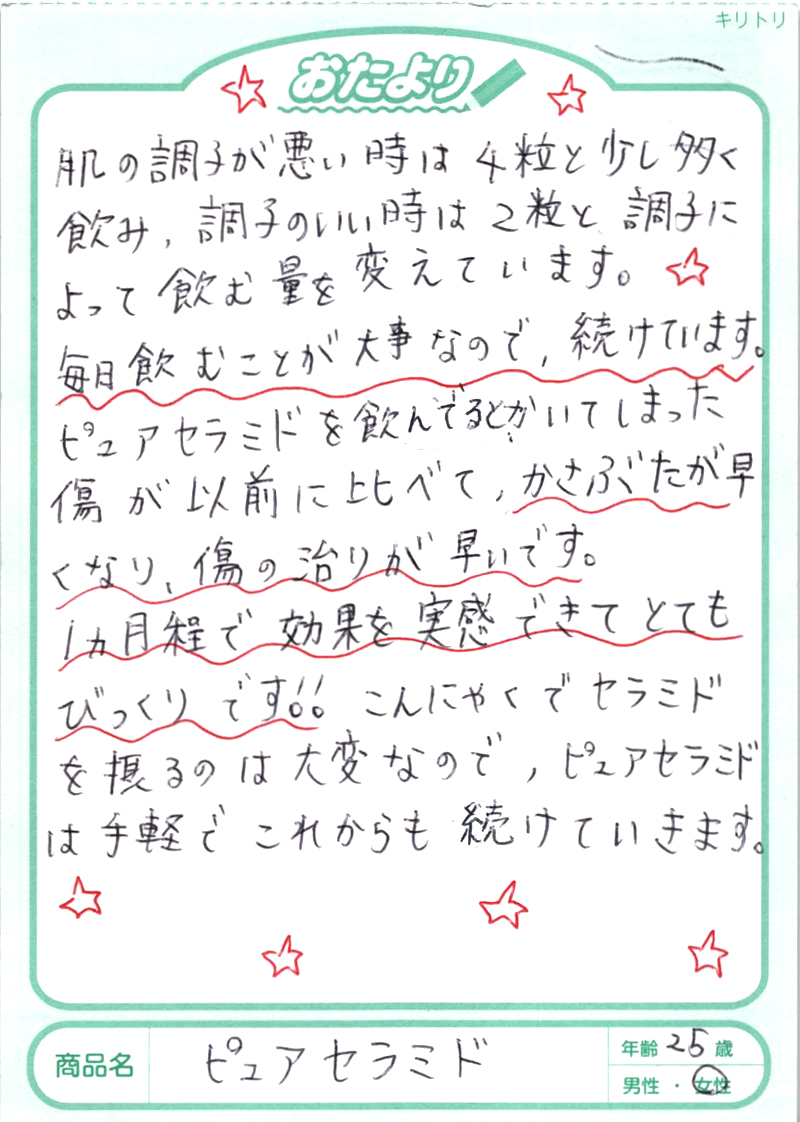 キリトリ
おたより
肌の調子が悪い時は4粒と少し多く
飲み，調子のいい時は2粒と調子に
よって飲む量を変えています。
毎日飲むことが大事なので，続けています。
ピュアセラミドを飲んでるとかいてしまった
傷が以前に比べて，かさぶたが早
くなり、傷の治りが早いです。
1ヵ月程で効果を実感できてとても
びっくりです!! こんにゃくでセラミド
を摂るのは大変なので，ピュアセラミド
は手軽でこれからも続けていきます。
商品名 ピュアセラミド 年齢 25 歳
男性・女性